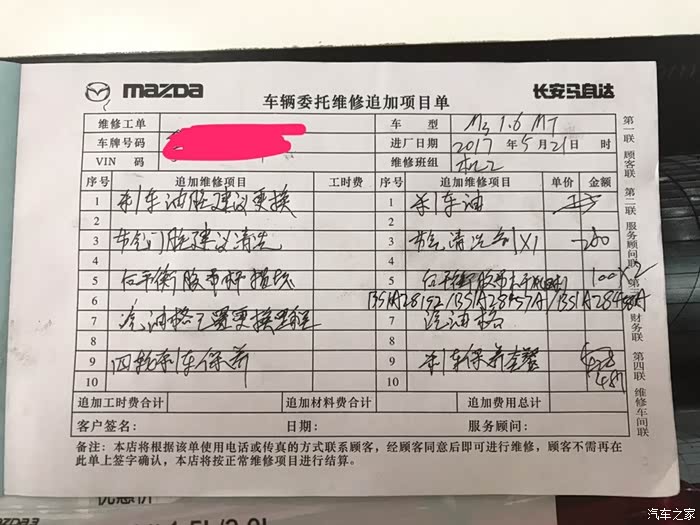 mazda 长安马自达
车辆委托维修追加项目单
维修工单 车 型 M3 1.6 MT
车牌号码 进厂日期 2017 年 5 月 21 日 时
VIN 码 维修班组 机2
序号 追加维修项目 工时费 序号 追加维修项目 单价 金额
1 刹车油脏建议更换 1 刹车油
2 2
3 节气门脏建议清洗 3 节气清洗剂X1 280
4 4
5 后平衡 5 100X2
6 6
7 汽油格 更换 7 汽油格
8 8
9 四轮刹车保养 9 刹车保养套餐
10 10
追加工时费合计 追加材料费合计 追加费用总计
客户签名: 日期: 服务顾问:
备注:本店将根据该单使用电话或传真的方式联系顾客,经顾客同意后即可进行维修,顾客不需再在
此单上签字确认,本店将按正常维修项目进行结算。
第一联 顾客联 第二联 服务顾问联 第 财务联 第四联 维修车间联
汽车之家